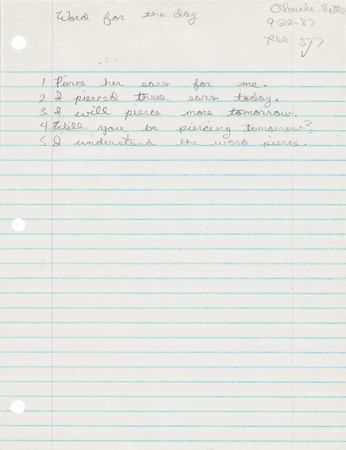 Word for the day
9-22-87
Per 5/7
1 Pierce her ears for me.
2 I pierced three ears today.
3 I will pierce more tomorrow.
4 Will you be piercing tomorrow?
5 I understand the word pierce.